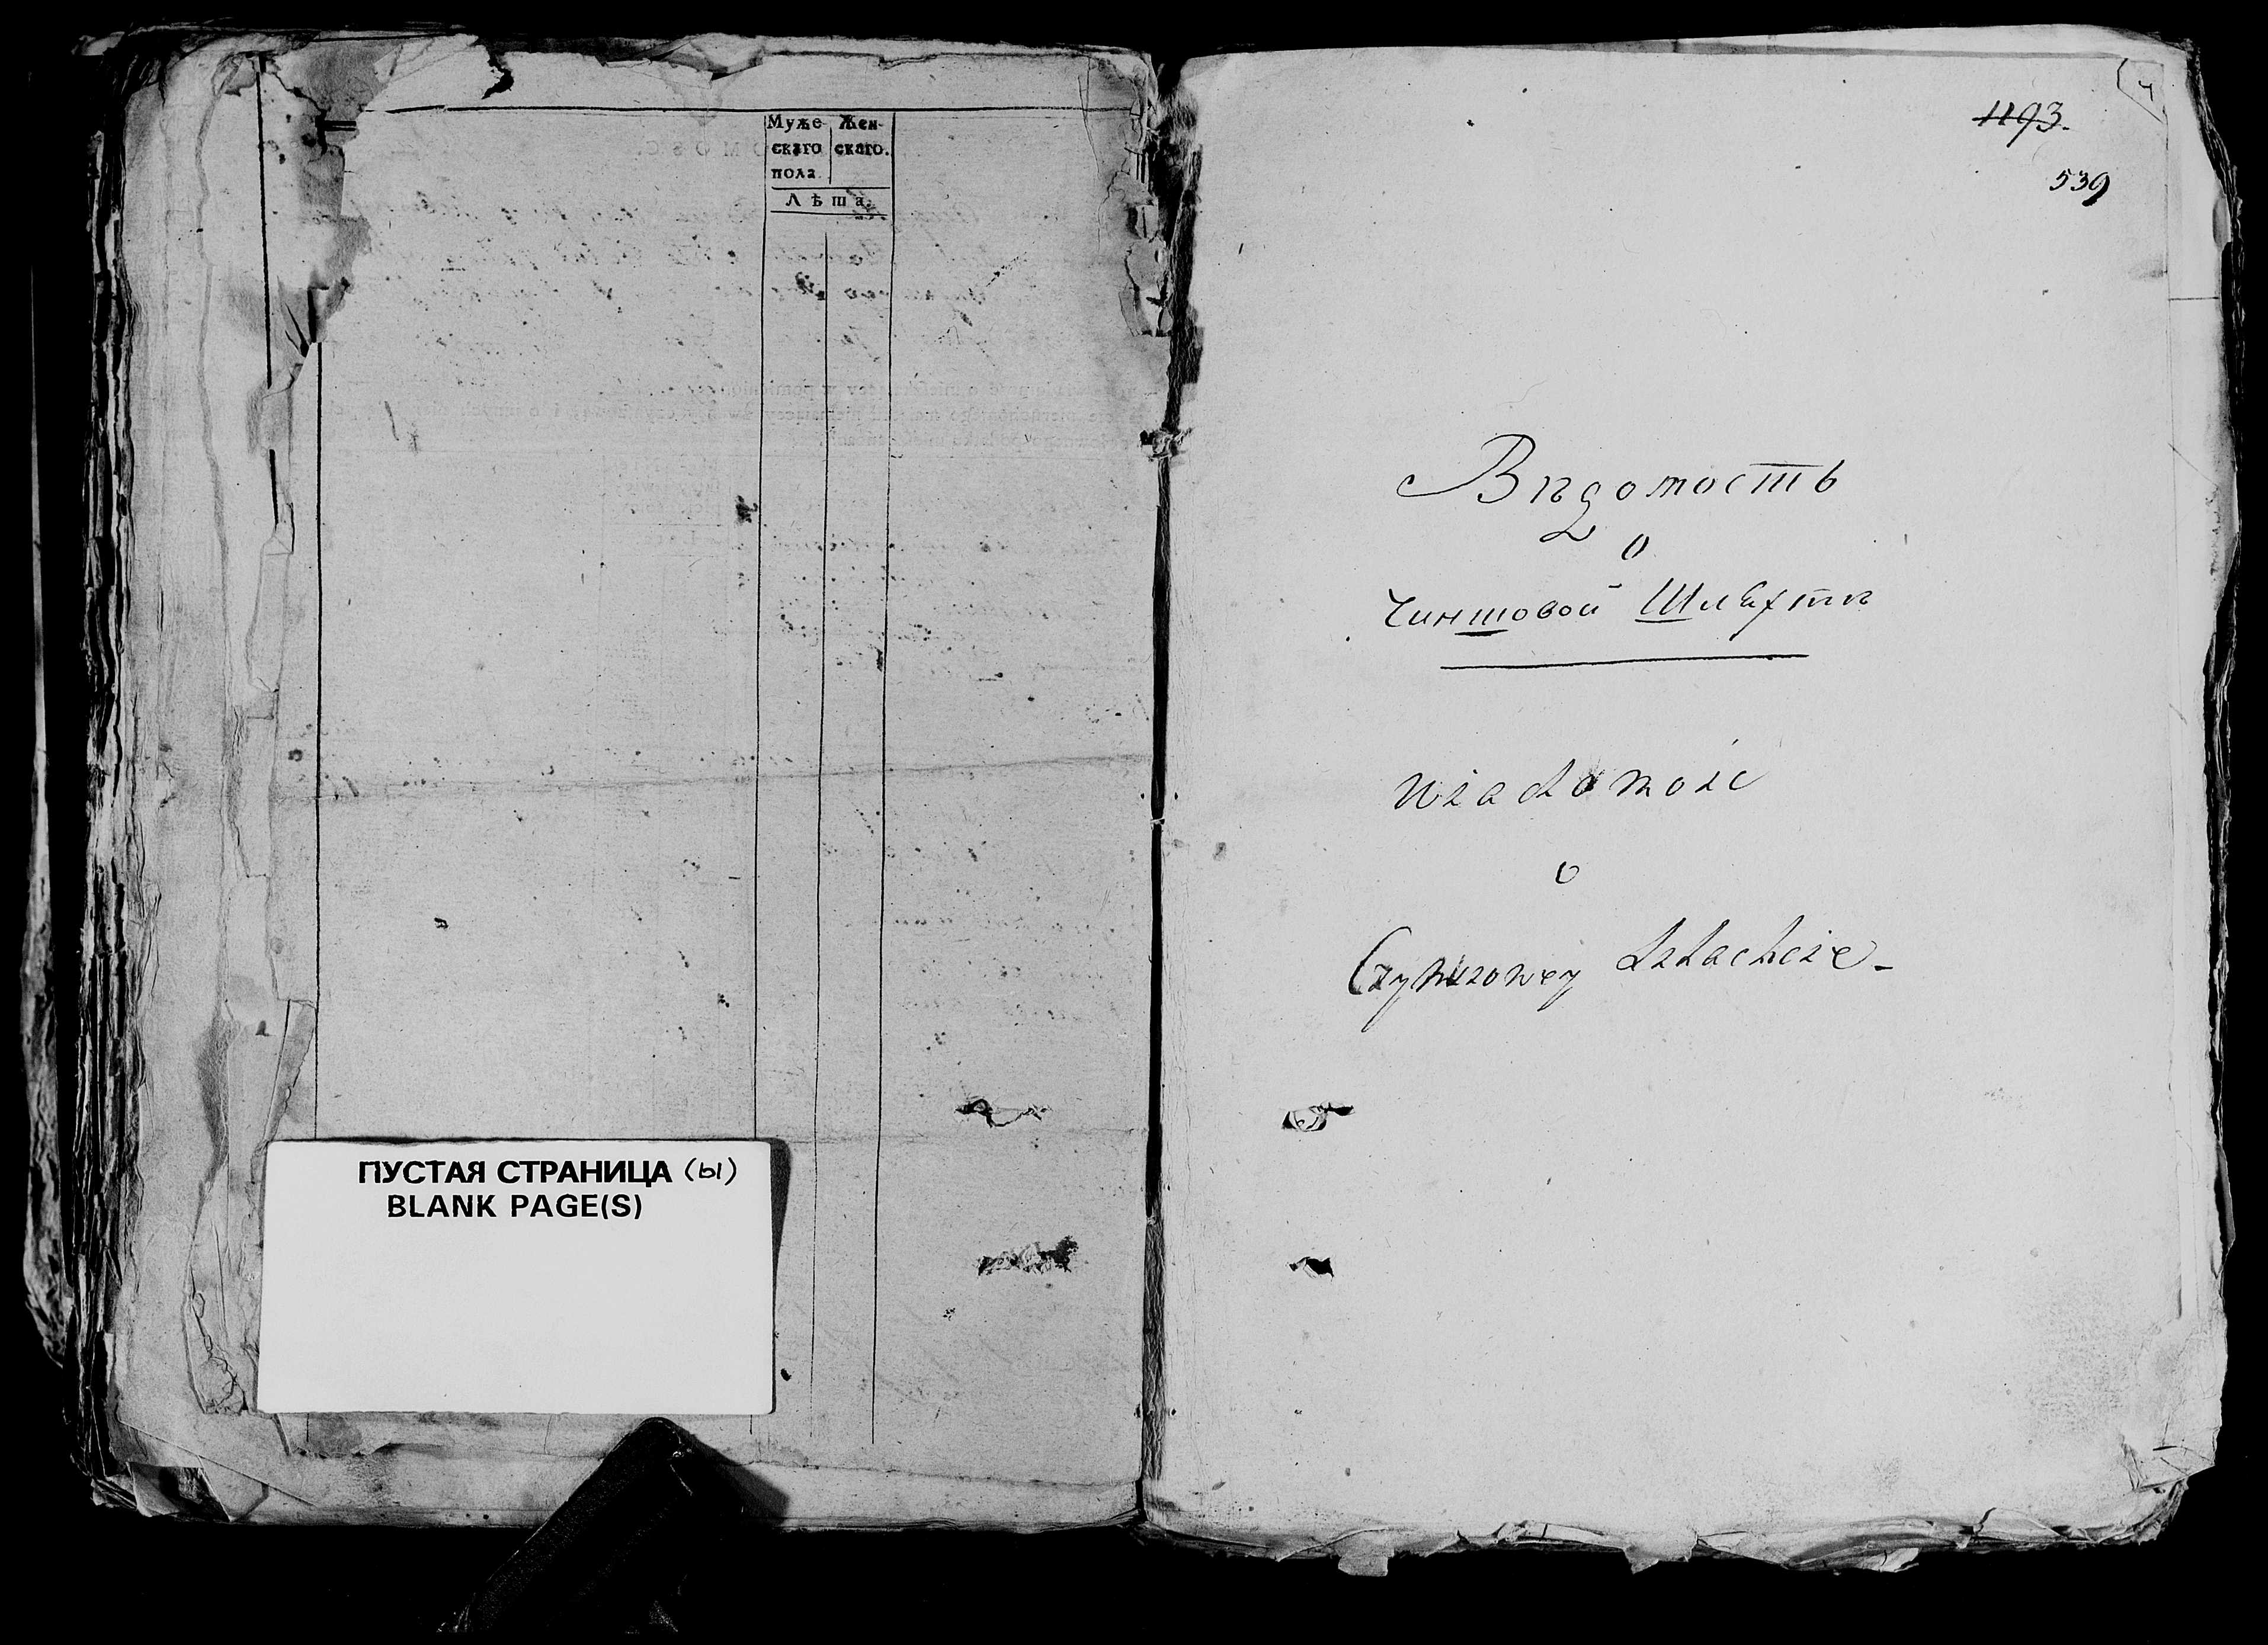 Муже- Жен-
скаго скаго.
пола.
Лѣта.
ПУСТАЯ СТРАНИЦА (ы)
BLANK PAGE(S)
4
1193.
539
Вѣдомость
о
Чиншовой Шляхтѣ
Wiadomość
o
Czynszowey Szlachcie